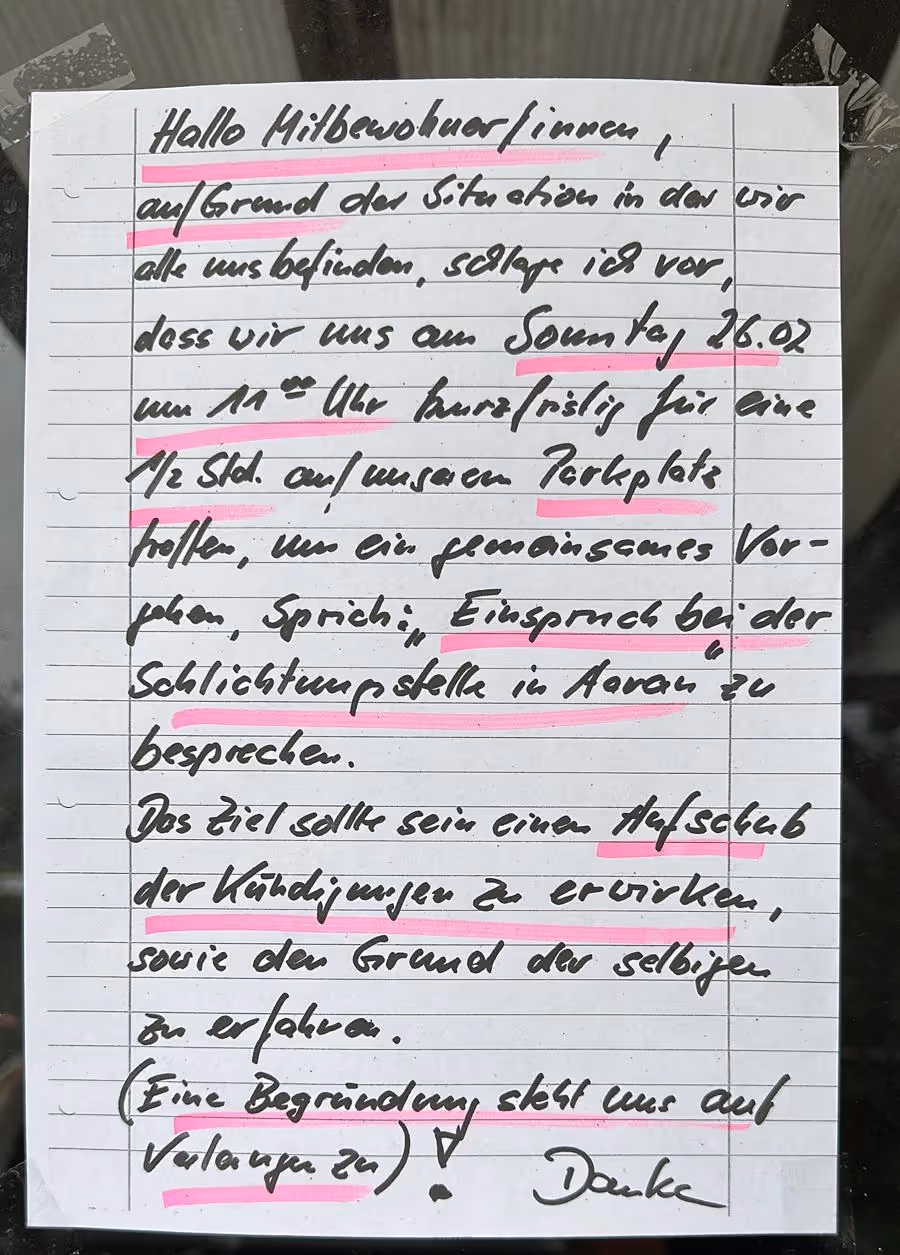 Hallo Mitbewohner/innen,
auf Grund der Situation in der wir
alle uns befinden, schlage ich vor,
dass wir uns am Sonntag 26.02
um 11⁰⁰ Uhr kurzfristig für eine
1/2 Std. auf unserem Parkplatz
treffen, um ein gemeinsames Vor-
gehen, Sprich: „Einspruch bei der
Schlichtungsstelle in Aarau“ zu
besprechen.
Das Ziel sollte sein einen Aufschub
der Kündigungen zu erwirken,
sowie den Grund der selbigen
zu erfahren.
(Eine Begründung steht uns auf
Verlangen zu)! Danke